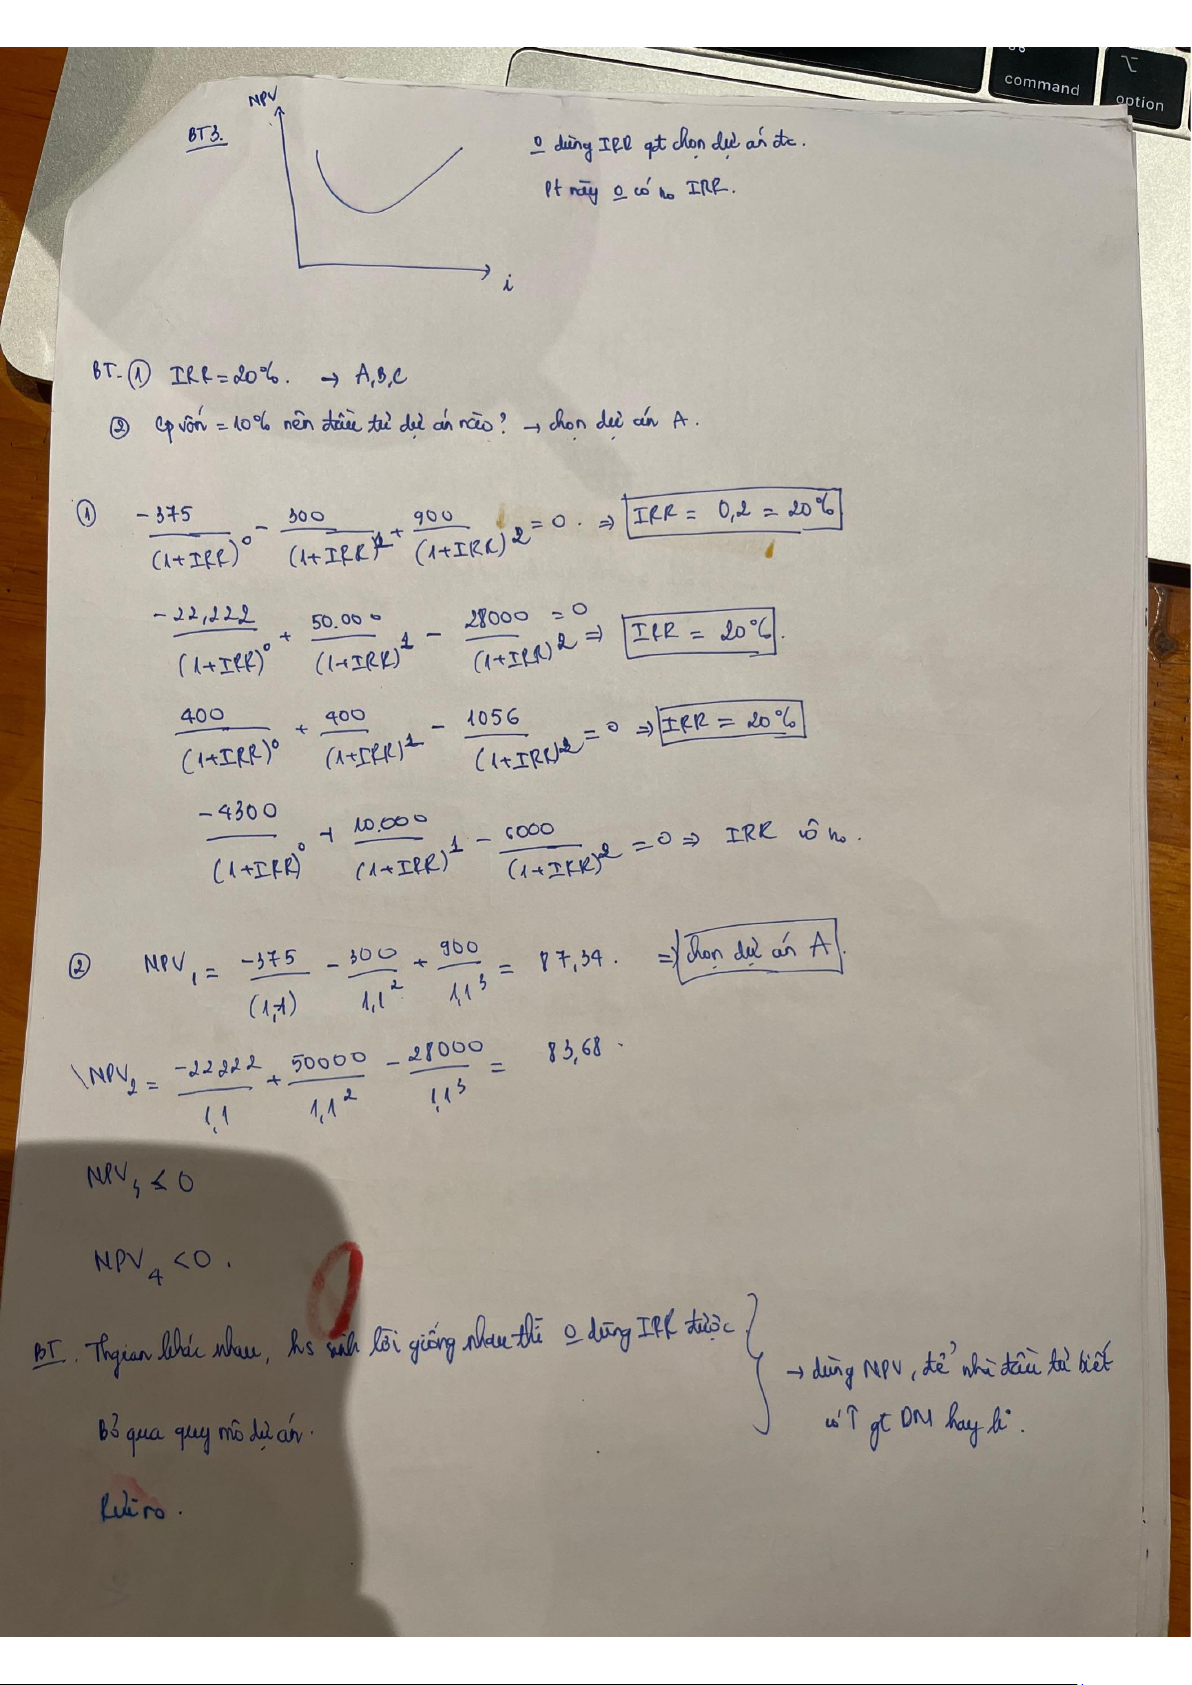 command
option
NPV
BT3.
i
o dùng IRR qt chọn dự án đc.
Pt này o có no IRR.
BT-① IRR = 20%. → A,B,C
② Cp vốn = 10% nên đầu tư dự án nào? → chọn dự án A.
① -375/(1+IRR)^0 - 300/(1+IRR)^1 + 900/(1+IRR)^2 = 0. ⇒ IRR = 0,2 = 20%
-22,222/(1+IRR)^0 + 50.000/(1+IRR)^1 - 28000/(1+IRR)^2 = 0 ⇒ IRR = 20%.
400/(1+IRR)^0 + 400/(1+IRR)^1 - 1056/(1+IRR)^2 = 0 ⇒ IRR = 20%
-4300/(1+IRR)^0 + 10.000/(1+IRR)^1 - 6000/(1+IRR)^2 = 0 ⇒ IRR vô no.
② NPV1 = -375/(1,1) - 300/1,1^2 + 900/1,1^3 = 87,34. ⇒ chọn dự án A.
NPV2 = -22222/1,1 + 50000/1,1^2 - 28000/1,1^3 = 83,68.
NPV3 ≤ 0
NPV4 < 0.
BT. Thgian khác nhau, hs sinh lời giống nhau thì o dùng IRR được
Bỏ qua quy mô dự án.
Rủi ro.
→ dùng NPV, để nhà đầu tư biết
có ↑ gt DN hay k.